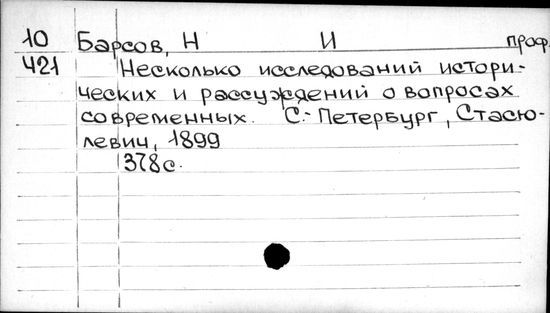 10 Барсов, Н И проф.
421 Несколько исследований истори-
ческих и рассуждений о вопросах
современных. С.-Петербург, Стасю-
левич, 1899
378с.